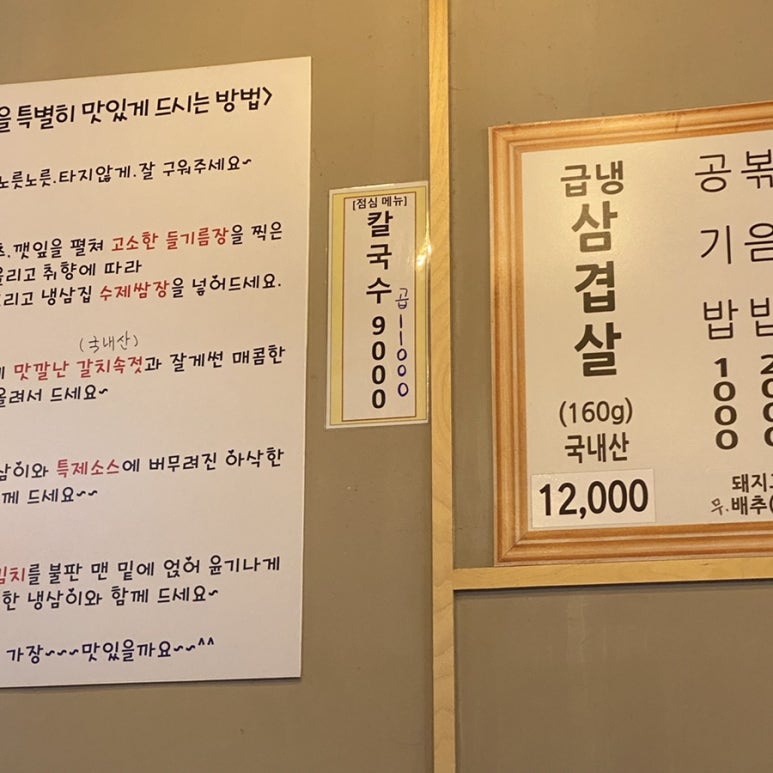 을 특별히 맛있게 드시는 방법>
노릇노릇.타지않게.잘 구워주세요~
.깻잎을 펼쳐 고소한 들기름장을 찍은
올리고 취향에 따라
그리고 냉삼집 수제쌈장을 넣어드세요.
(국내산)
맛깔난 갈치속젓과 잘게썬 매콤한
올려서 드세요~
삼이와 특제소스에 버무려진 아삭한
께 드세요~~
김치를 불판 맨 밑에 얹어 윤기나게
한 냉삼이와 함께 드세요~
가장~~~맛있을까요~~^^
[점심 메뉴]
칼국수 9000
곱 11000
급냉
삼겹살
(160g)
국내산
12,000
공기밥 1000
볶음밥
돼지고
무.배추(